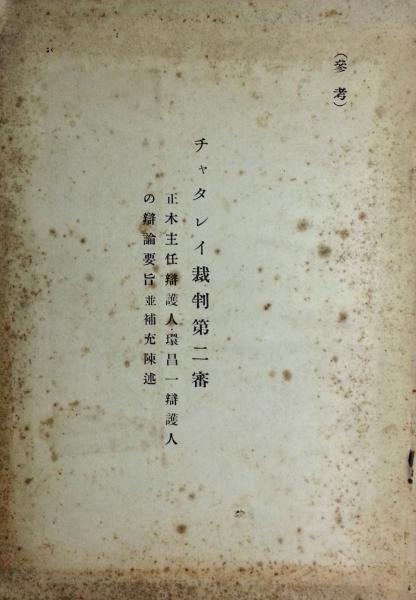 (參考)
チャタレイ裁判第二審
正木主任辯護人・環昌一辯護人
の辯論要旨並補充陳述